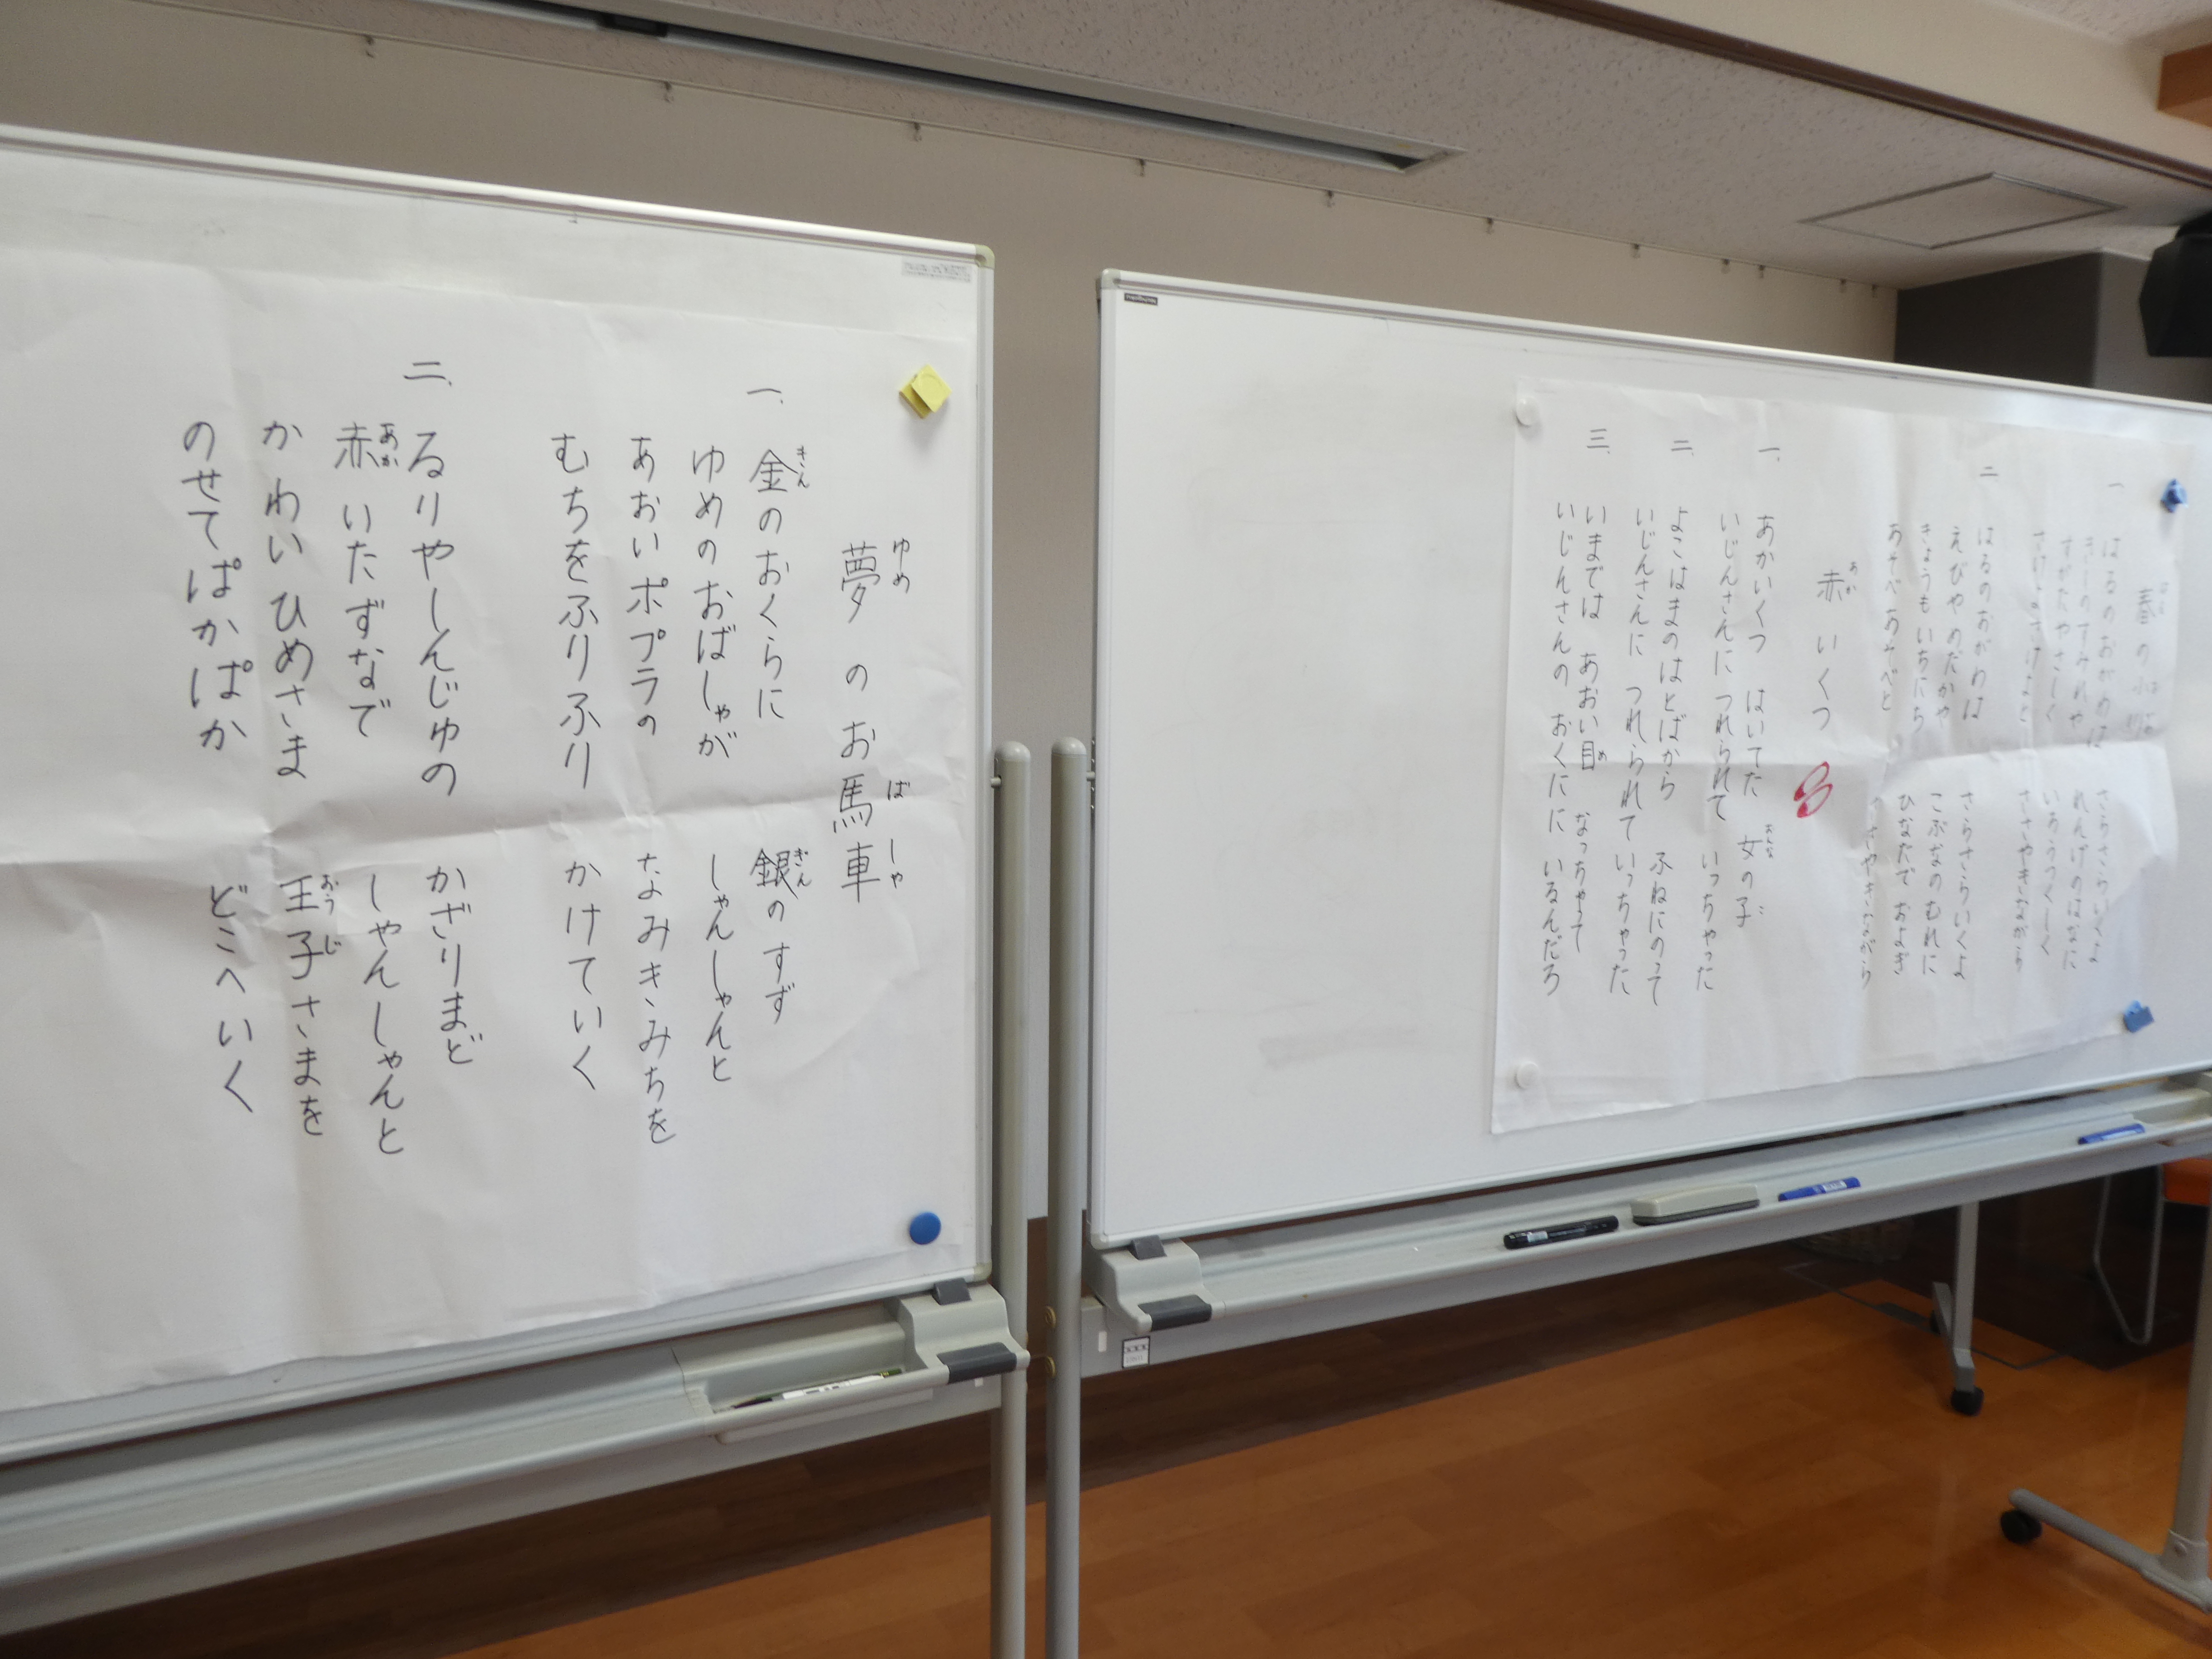 はる
春の小川
一 はるのおがわは さらさらいくよ
きしのすみれや れんげのはなに
すがたやさしく いろうつくしく
さけよさけよと ささやきながら
二 はるのおがわは さらさらいくよ
えびやめだかや こぶなのむれに
きょうもいちにち ひなたでおよぎ
あそべあそべと ささやきながら
あか
赤いくつ
おんな こ
一、 あかいくつ はいてた 女の子
いじんさんに つれられて いっちゃった
二、 よこはまのはとばから ふねにのって
いじんさんに つれられて いっちゃった
め
三、 いまでは あおい目 なっちゃって
いじんさんの おくにに いるんだろ
ゆめ ばしゃ
夢のお馬車
きん ぎん
一、 金のおくらに 銀のすず
ゆめのおばしゃが しゃんしゃんと
あおいポプラの なみきみちを
むちをふりふり かけていく
二、 るりやしんじゅの かざりまど
あか
赤いたずなで しゃんしゃんと
おうじ
かわいひめさま 王子さまを
のせてぱかぱか どこへいく